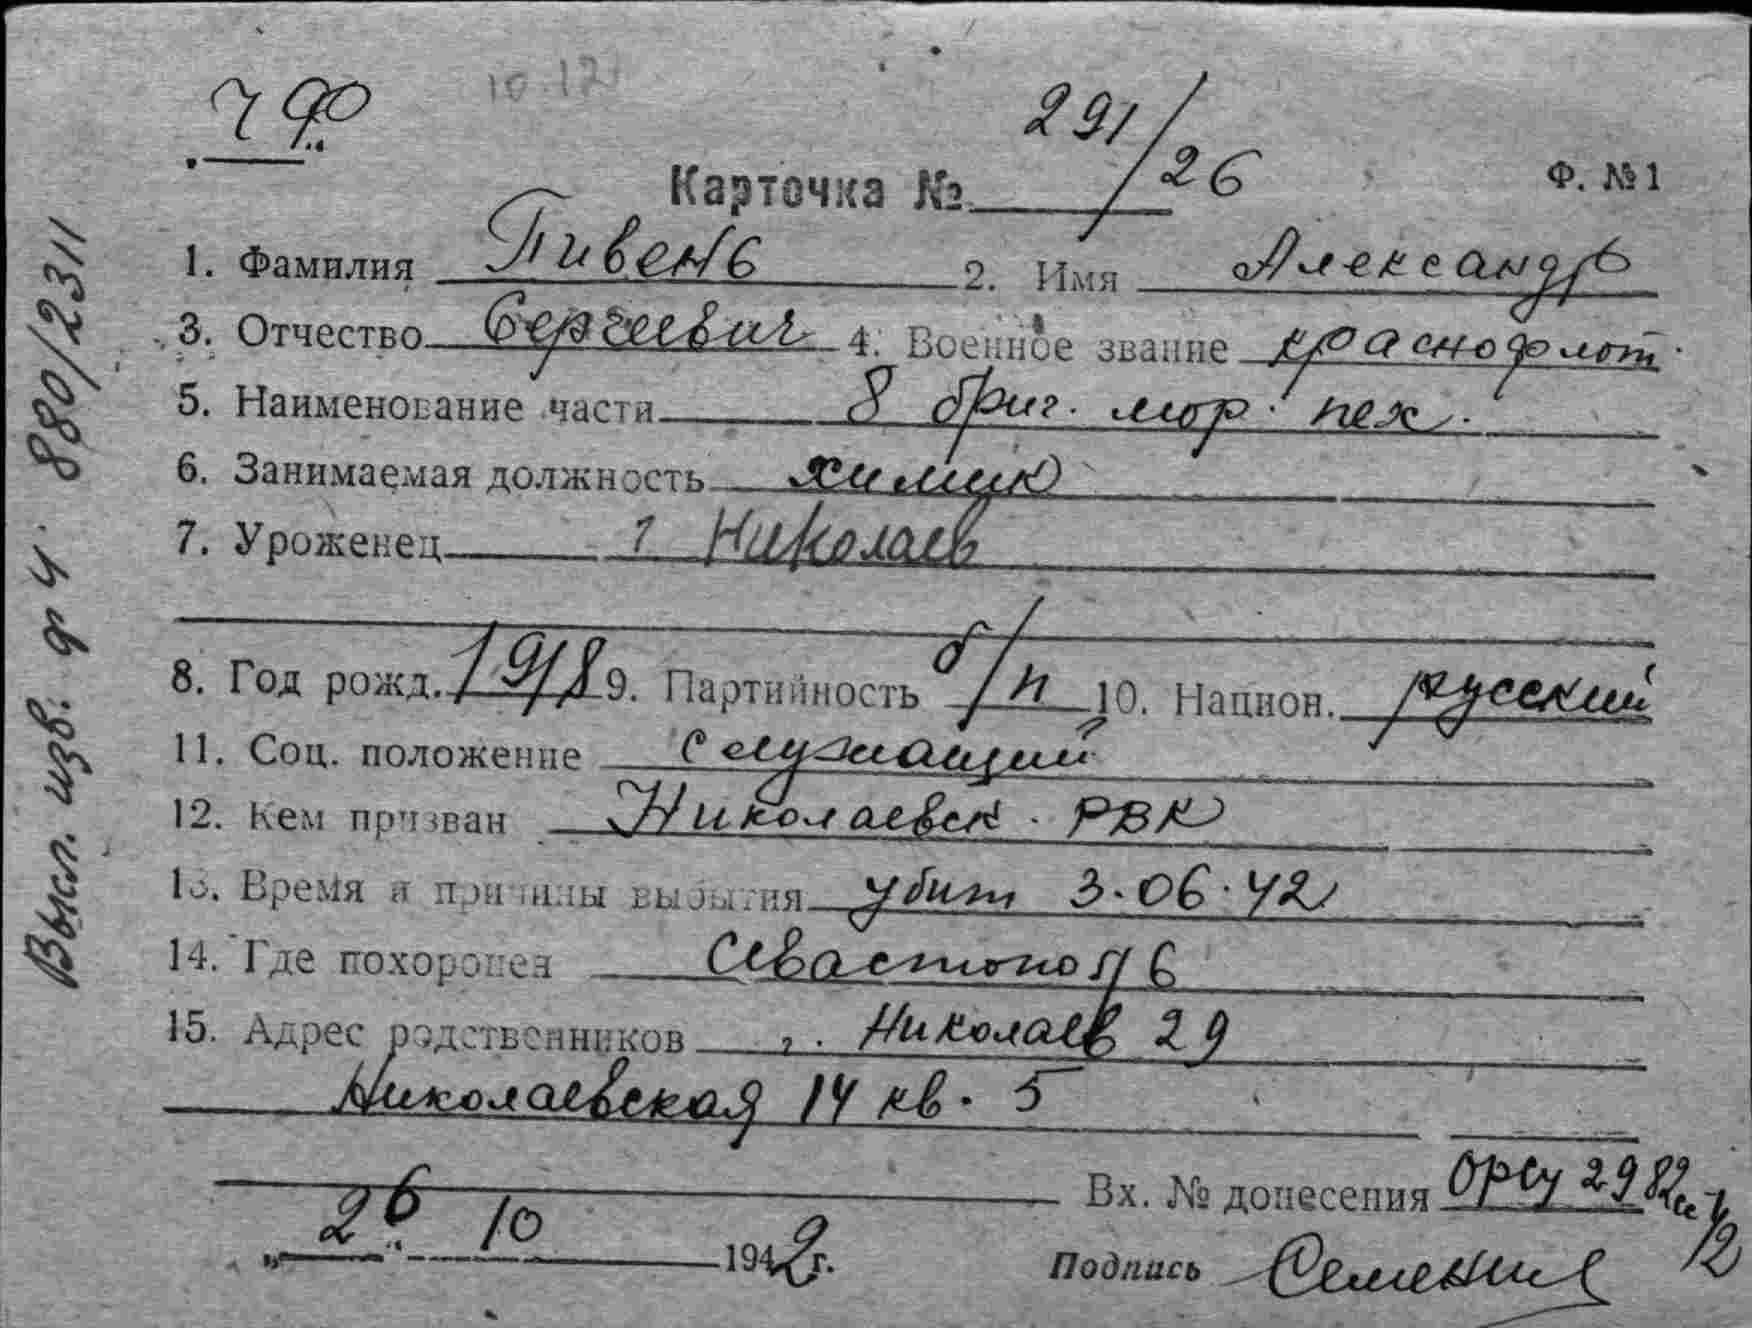 ЧФ
10.12
291/26
Карточка №
Ф. №1
1. Фамилия Пивень 2. Имя Александр
3. Отчество Сергеевич 4. Военное звание краснофлот.
5. Наименование части 8 бриг. мор. пех.
6. Занимаемая должность химик
7. Уроженец г Николаев
8. Год рожд. 1918 9. Партийность б/п 10. Национ. русский
11. Соц. положение служащий
12. Кем призван Николаевск. РВК
13. Время и причины выбытия убит 3.06.42
14. Где похоронен Севастополь
15. Адрес родственников г. Николаев 29
Николаевская 14 кв. 5
Вх. № донесения ОРСУ 2982сс
12
„26" 10 1942г.
Подпись
Высл. изв. ф 4 880/2311